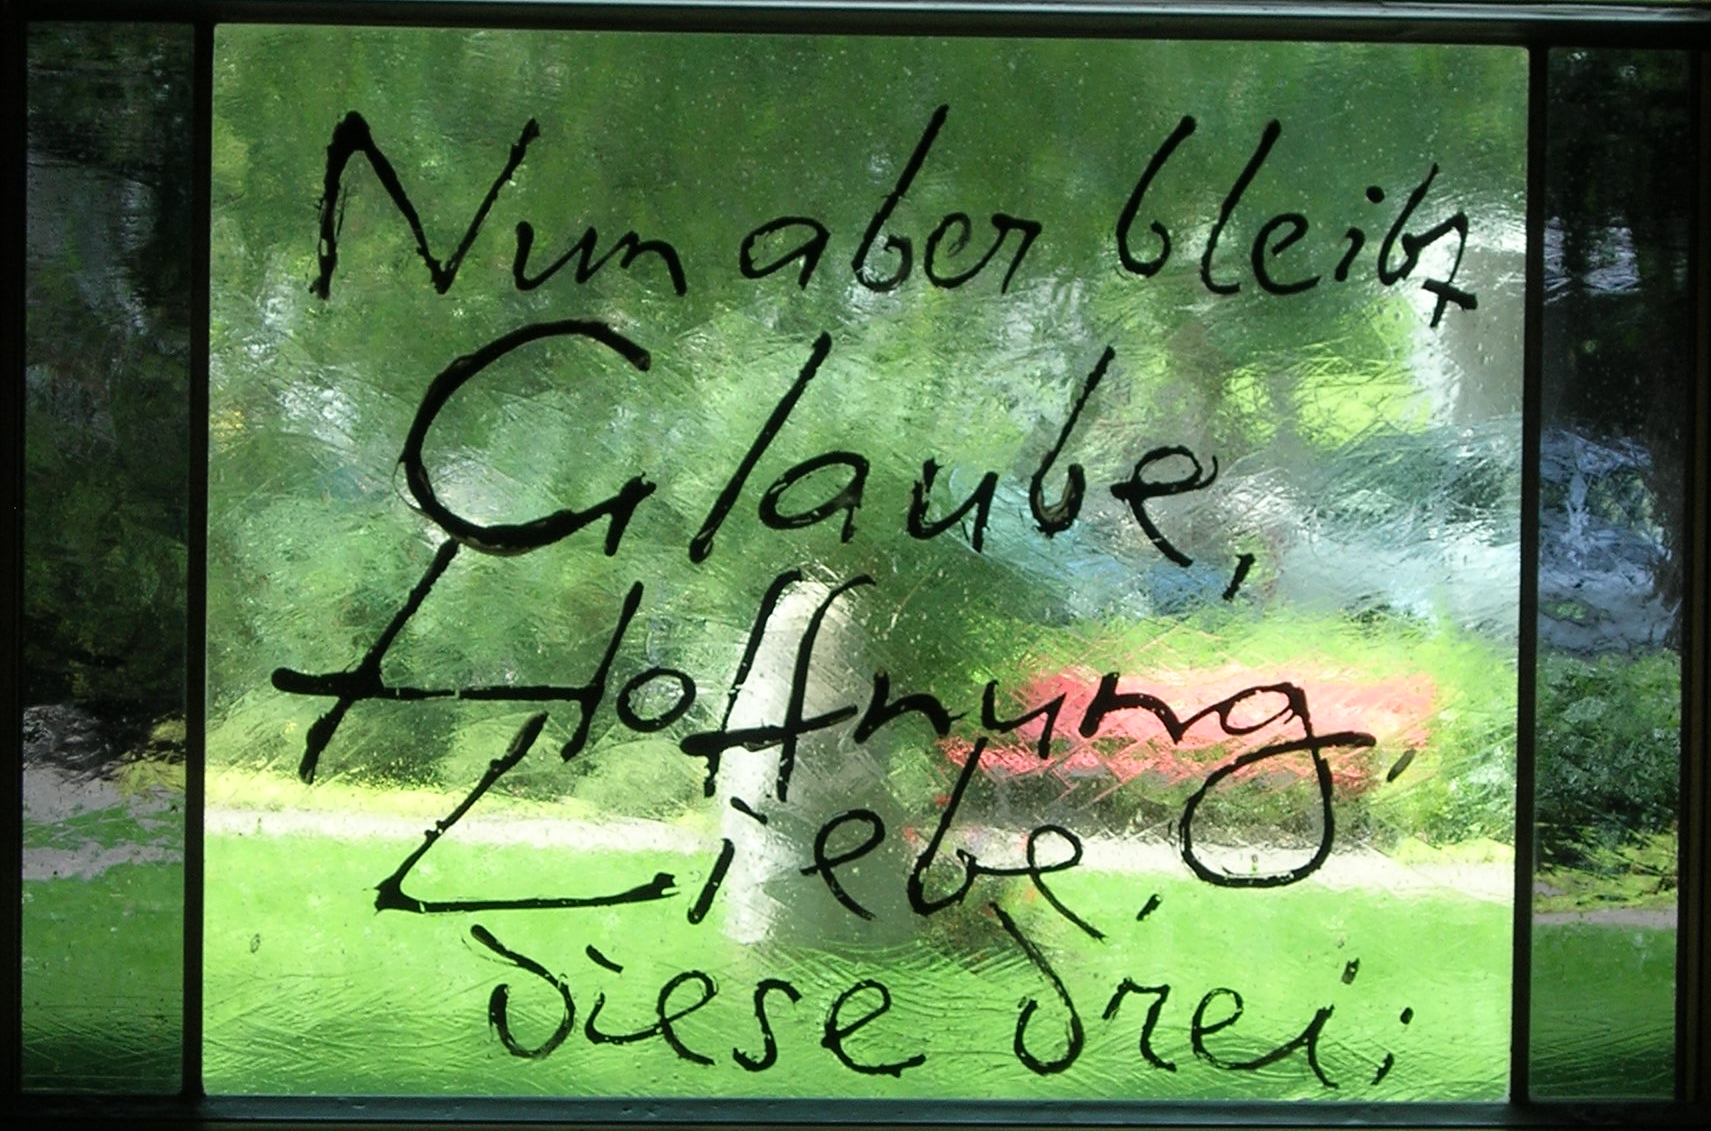 Nun aber bleibt
Glaube,
Hoffnung,
Liebe,
diese drei;